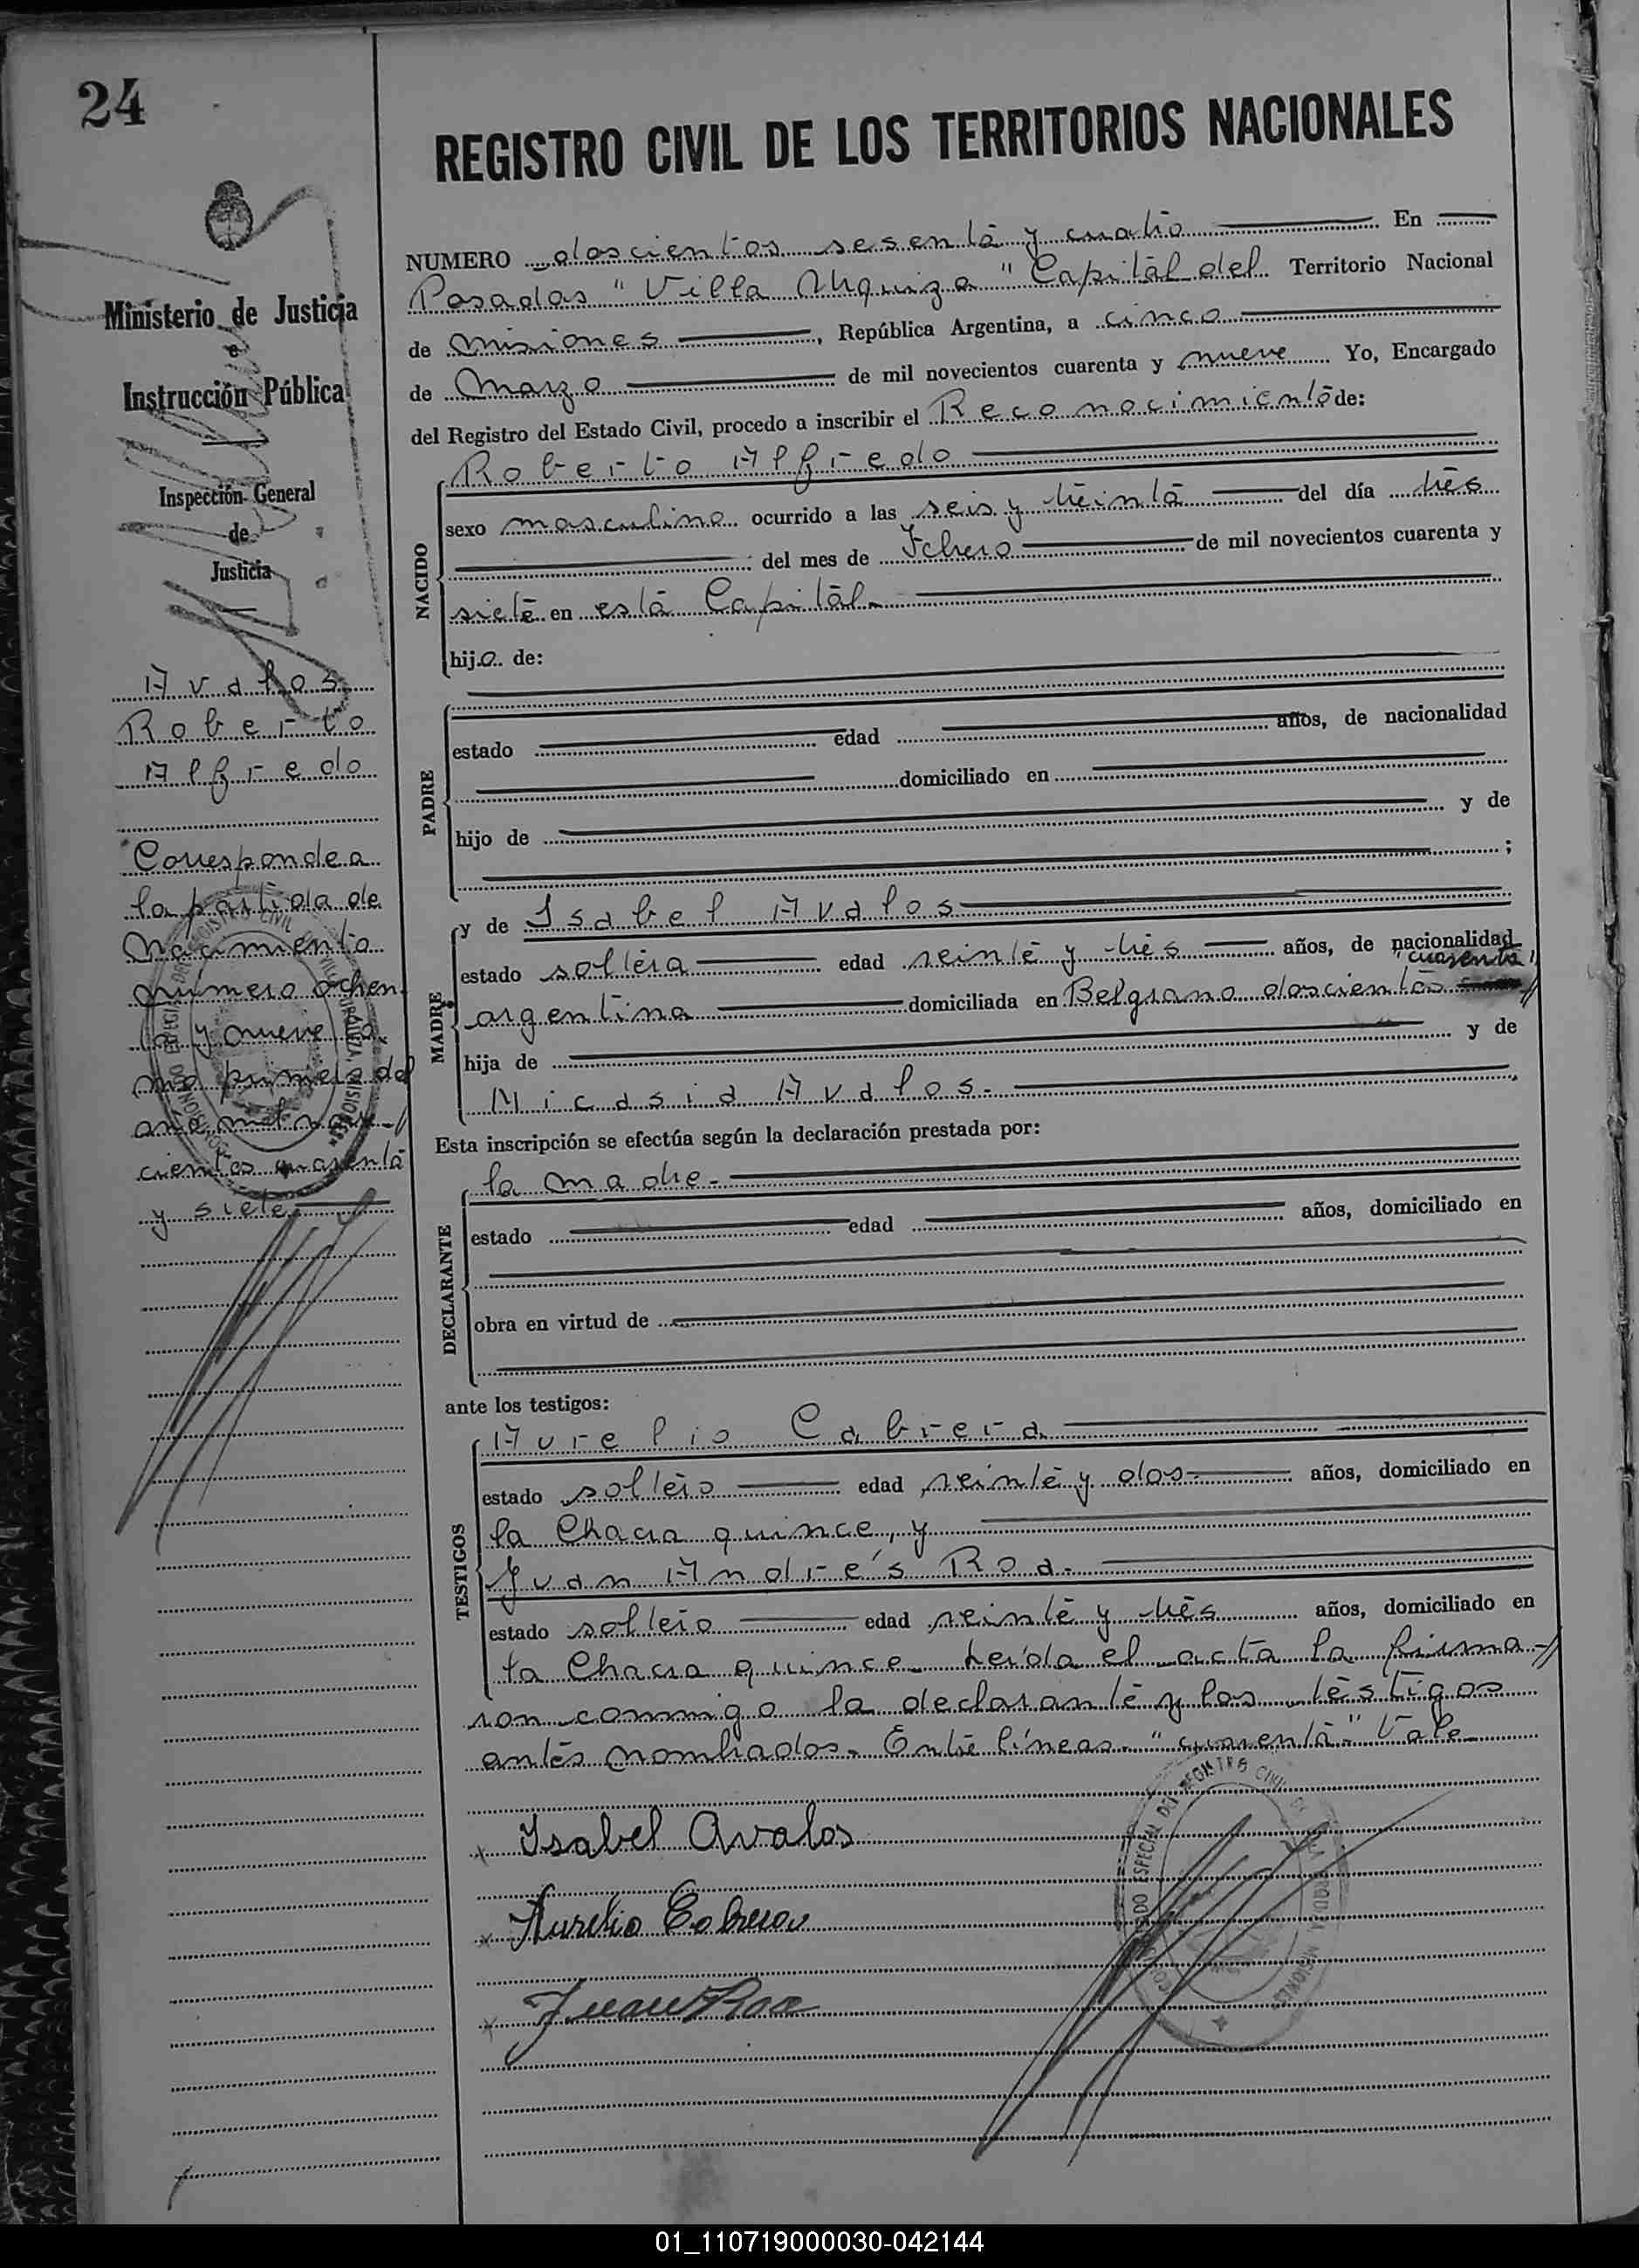 24
REGISTRO CIVIL DE LOS TERRITORIOS NACIONALES
Ministerio de Justicia
e
Instrucción Pública
Inspección General
de
Justicia
Avalos
Roberto
Alfredo
Corresponde a
la partida de
Nacimiento
número ochen-
ta y nueve to-
mo primero del
año mil nove-//
cientos cuarenta
y siete
NUMERO doscientos sesenta y cuatro En
Posadas "Villa Urquiza" Capital del Territorio Nacional
de Misiones, República Argentina, a cinco
de Marzo de mil novecientos cuarenta y nueve Yo, Encargado
del Registro del Estado Civil, procedo a inscribir el Reconocimiento de:
NACIDO
Roberto Alfredo
sexo masculino ocurrido a las seis y treinta del día tres
del mes de Febrero de mil novecientos cuarenta y
siete en esta Capital.-
hijo de:
PADRE
estado edad años, de nacionalidad
domiciliado en
hijo de y de
;
MADRE
y de Isabel Avalos
estado soltera edad veinte y tres años, de nacionalidad
"cuarenta"
argentina domiciliada en Belgrano doscientos //
hija de y de
Micasia Avalos.-
Esta inscripción se efectúa según la declaración prestada por:
DECLARANTE
la madre.-
estado edad años, domiciliado en
obra en virtud de
ante los testigos:
TESTIGOS
Aurelio Cabrera
estado soltero edad veinte y dos- años, domiciliado en
la Chacra quince, y
Juan Andrés Roa.-
estado soltero edad veinte y tres años, domiciliado en
la Chacra quince- Leída el acta la firma-//
ron conmigo la declarante y los testigos
antes nombrados.- Entre líneas.- "cuarenta" Vale-
Isabel Avalos
Aurelio Cabrera
Juan Roa
01_110719000030-042144